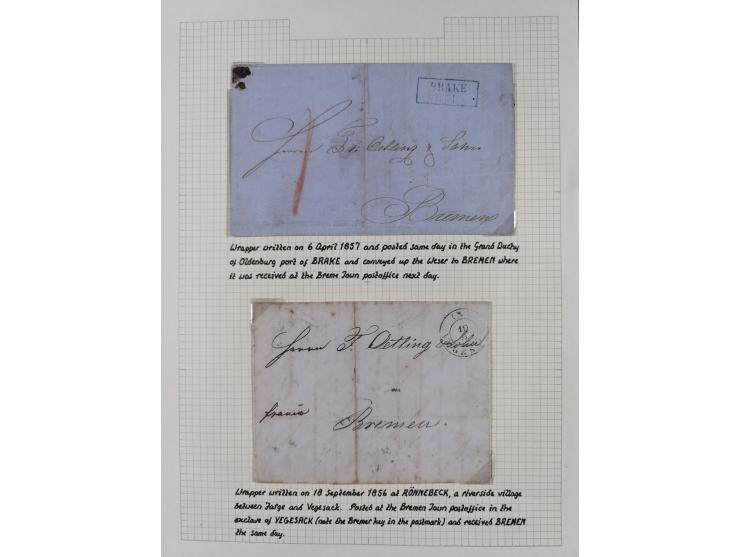 BRAKE
Herrn F. Oetling & Sohn
Bremen
Wrapper written on 6 April 1857 and posted same day in the Grand Duchy
of Oldenburg port of BRAKE and conveyed up the Weser to BREMEN where
it was received at the Breme Town postoffice next day.
10
Herrn F. Oetling & Sohn
in
franco
Bremen.
Wrapper written on 18 September 1856 at RÖNNEBECK, a riverside village
between Farge and Vegesack. Posted at the Bremen Town postoffice in the
exclave of VEGESACK (note the Bremer key in the postmark) and received BREMEN
the same day.